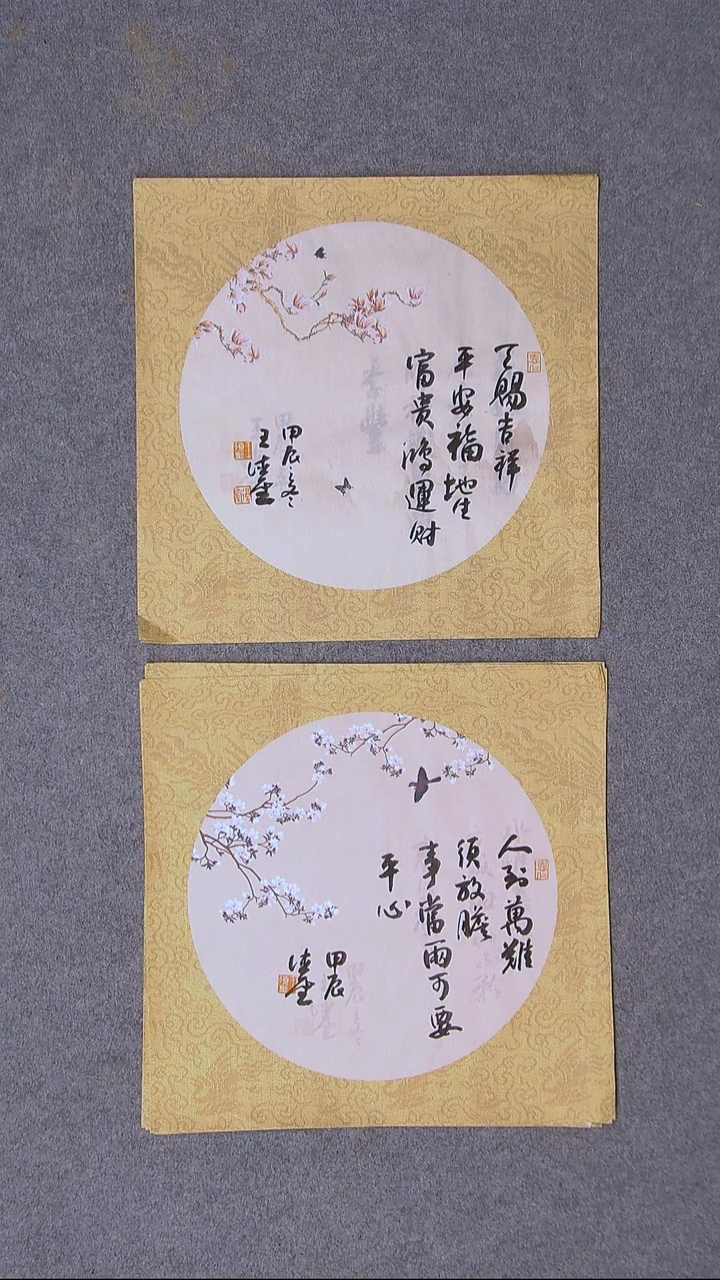 天赐吉祥
平安福地生
富贵鸿運财
甲辰之冬
王
人到萬難
须放膽
事當兩可要
平心
甲辰